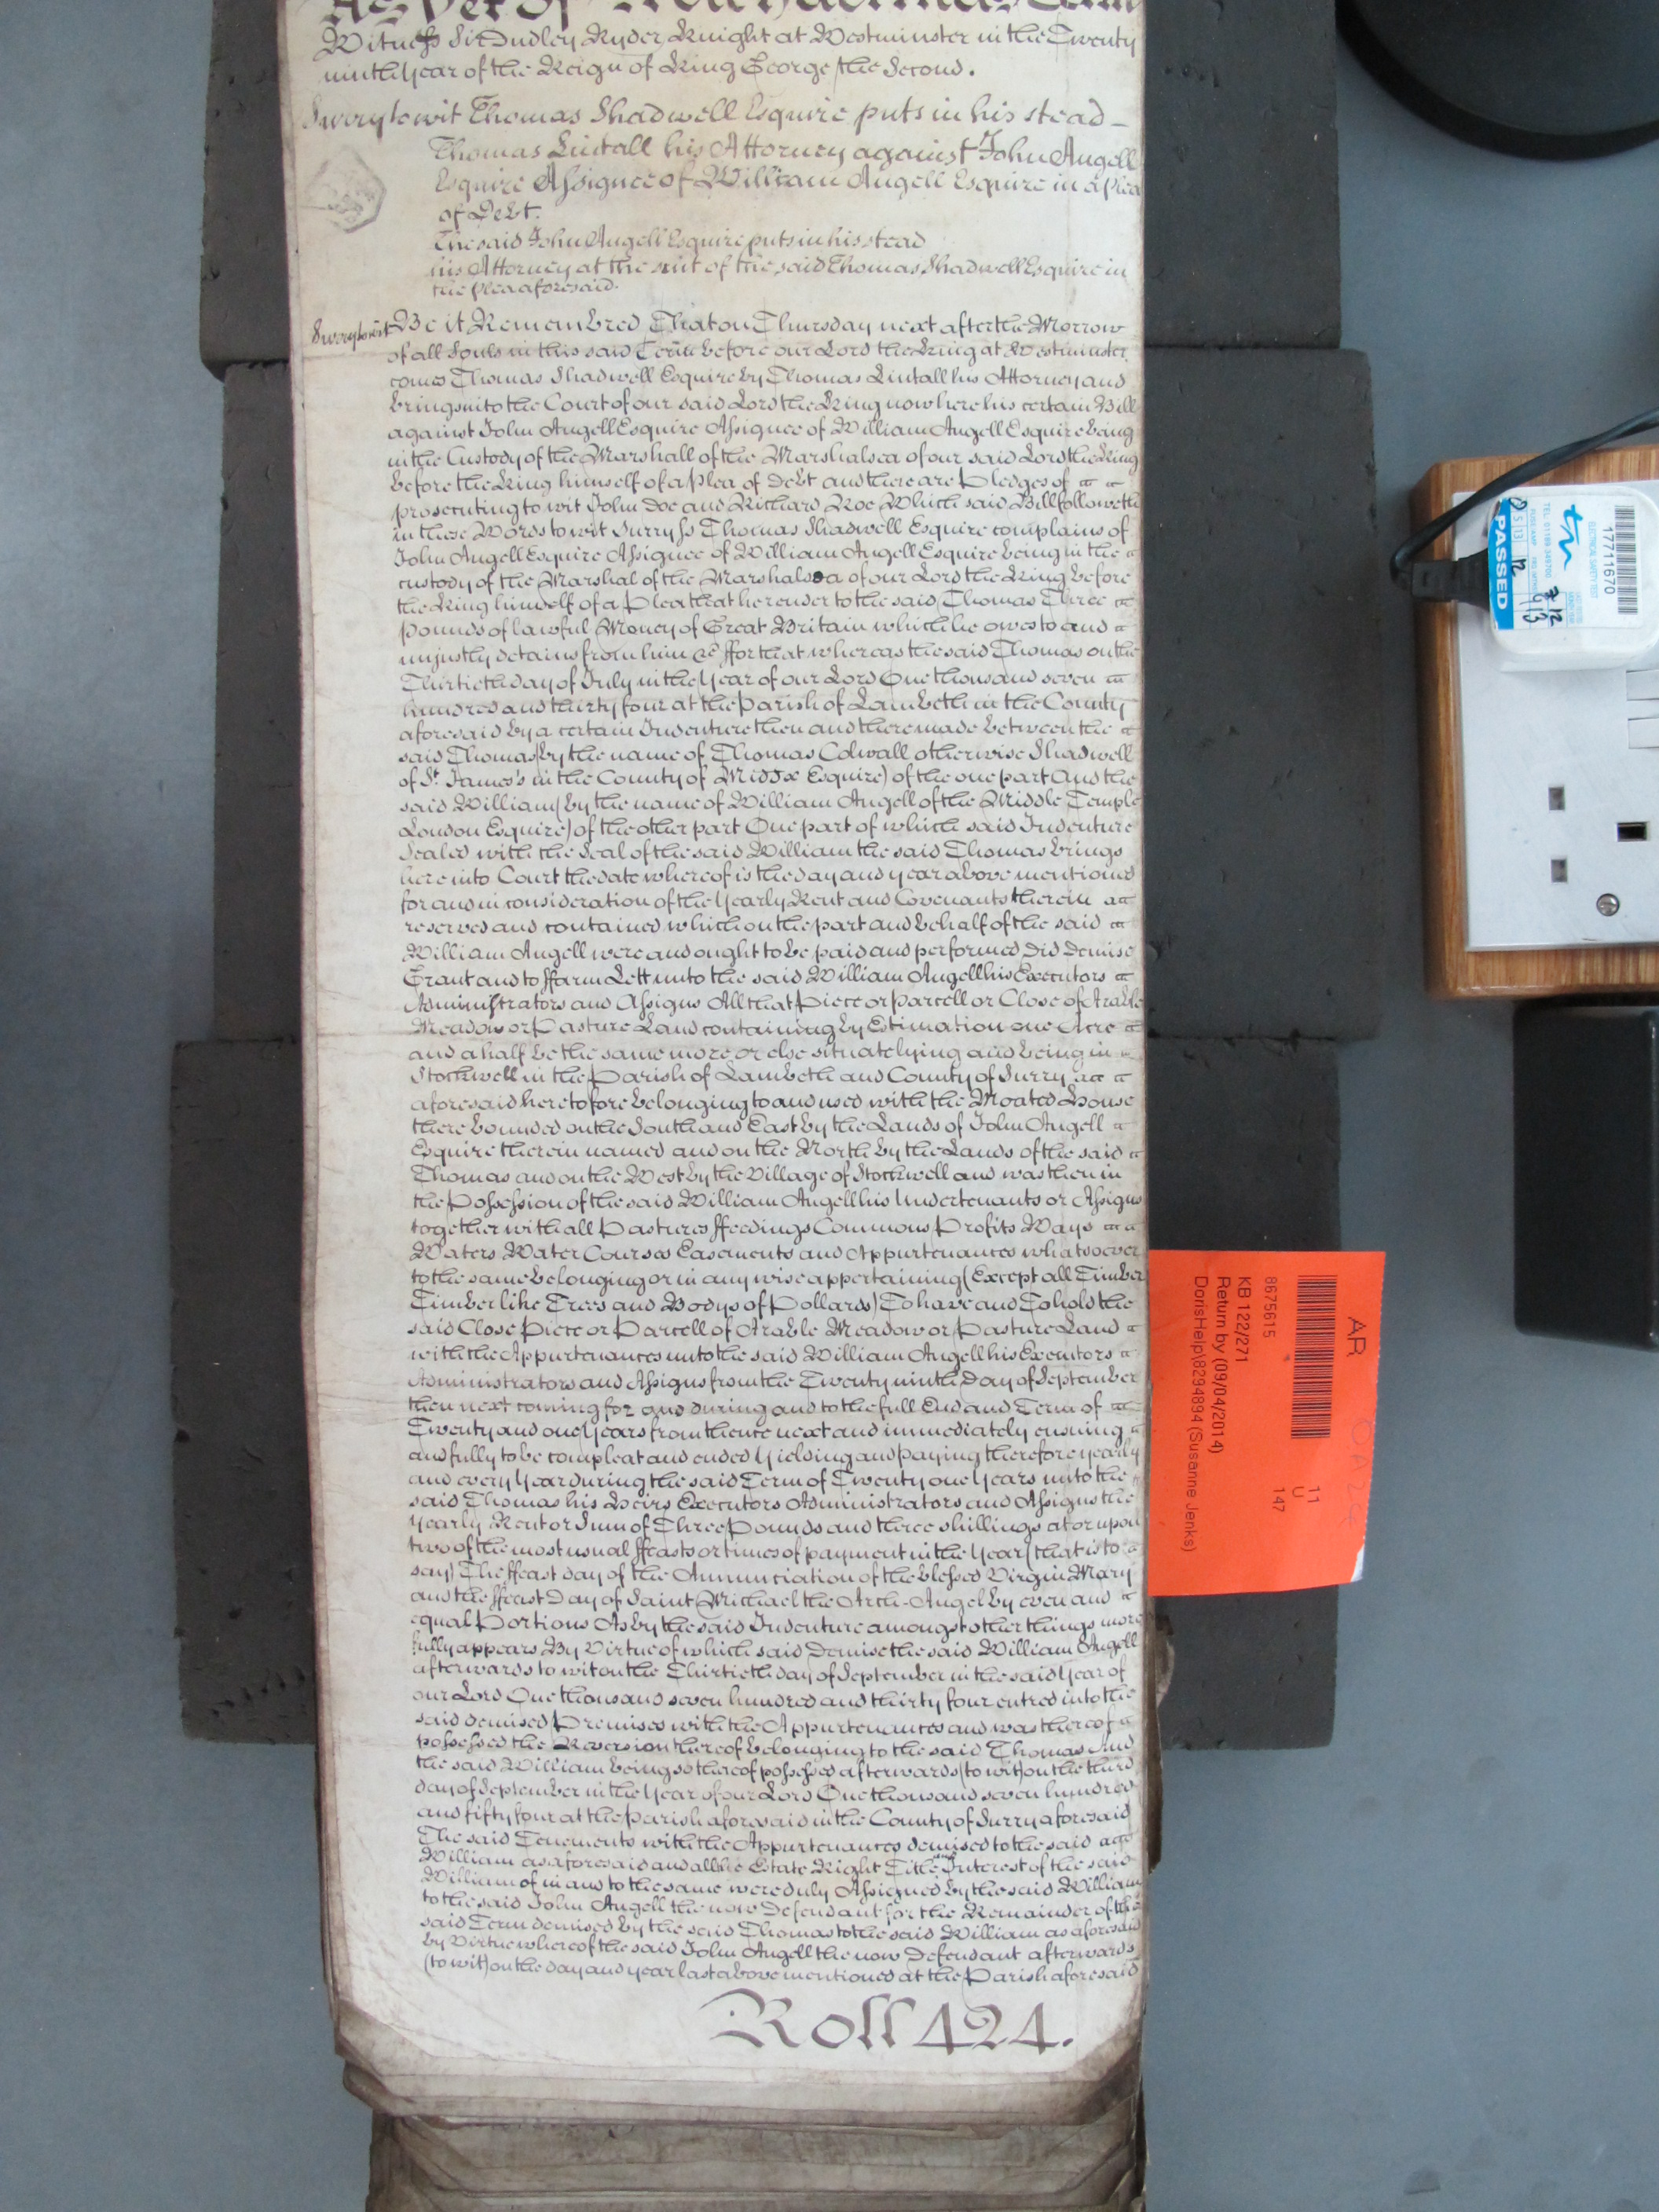 As yet of Michaelmas Term
Witness Sir Dudley Ryder Knight at Westminster in the Twenty
ninth Year of the Reign of King George the Second.
Surry to wit Thomas Shadwell Esquire puts in his stead
Thomas Lintall his Attorney against John Angell
Esquire Assignee of William Angell Esquire in a plea
of Debt.
The said John Angell Esquire puts in his stead
his Attorney at the suit of the said Thomas Shadwell Esquire in
the plea aforesaid.
Surry to wit Be it Remembred That on Thursday next after the Morrow
of all Souls in this said Term before our Lord the King at Westminster
comes Thomas Shadwell Esquire by Thomas Lintall his Attorney and
brings into the Court of our said Lord the King now here his certain Bill
against John Angell Esquire Assignee of William Angell Esquire being
in the Custody of the Marshall of the Marshalsea of our said Lord the King
before the King himself of a plea of Debt and there are Pledges of
prosecuting to wit John Doe and Richard Roe Which said Bill followeth
in these Words to wit Surry ss Thomas Shadwell Esquire complains of
John Angell Esquire Assignee of William Angell Esquire being in the
custody of the Marshal of the Marshalsea of our Lord the King before
the King himself of a Plea that he render to the said Thomas Three
pounds of lawful Money of Great Britain which he owes to and
unjustly detains from him &c ffor that whereas the said Thomas on the
Thirtieth day of July in the Year of our Lord One thousand seven
hundred and thirty four at the Parish of Lambeth in the County
aforesaid by a certain Indenture then and there made between the
said Thomas (by the name of Thomas Colwall otherwise Shadwell
of St. James's in the County of Middx Esquire) of the one part And the
said William (by the name of William Angell of the Middle Temple
London Esquire) of the other part One part of which said Indenture
Sealed with the Seal of the said William the said Thomas brings
here into Court the date whereof is the day and year above mentioned
for and in consideration of the Yearly Rent and Covenants therein
reserved and contained which on the part and behalf of the said
William Angell were and ought to be paid and performed did Demise
Grant and to ffarm Lett unto the said William Angell his Executors
Administrators and Assigns All that Piece or parcell or Close of Arable
Meadow or Pasture Land containing by Estimation one Acre
and a half be the same more or else situate lying and being in
Stockwell in the Parish of Lambeth and County of Surry
aforesaid heretofore belonging to and used with the Moated House
there bounded on the South and East by the Lands of John Angell
Esquire therein named and on the North by the Lands of the said
Thomas and on the West by the Village of Stockwell and was then in
the Possession of the said William Angell his Undertenants or Assigns
together with all Pastures ffeedings Commons Profits Ways
Waters Water Courses Easements and Appurtenances whatsoever
to the same belonging or in any wise appertaining (Except all Timber
Timberlike Trees and Bodys of Pollards) To have and To hold the
said Close Piece or Parcell of Arable Meadow or Pasture Land
with the Appurtenances unto the said William Angell his Executors
Administrators and Assigns from the Twenty ninth Day of September
then next coming for and during and to the full End and Term of
Twenty and one Years from thence next and immediately ensuing
and fully to be compleat and ended Yielding and paying therefore yearly
and every Year during the said Term of Twenty one Years unto the
said Thomas his Heirs Executors Administrators and Assigns the
yearly Rent or Sum of Three Pounds and three shillings at or upon
two of the most usual ffeasts or times of payment in the Year (that is to
say) The ffeast day of the Annunciation of the blessed Virgin Mary
and the ffeast Day of Saint Michael the Arch-Angel by even and
equal Portions As by the said Indenture amongst other things more
fully appears By Virtue of which said Demise the said William Angell
afterwards to wit on the Thirtieth day of September in the said Year of
our Lord One thousand seven hundred and thirty four entred into the
said demised Premises with the Appurtenances and was thereof
possessed the Reversion thereof belonging to the said Thomas And
the said William being so thereof possessed afterwards (to wit) on the third
day of September in the Year of our Lord One thousand seven hundred
and fifty four at the parish aforesaid in the County of Surry aforesaid
The said Tenements with the Appurtenances demised to the said
William as aforesaid and all the Estate Right Title and Interest of the said
William of in and to the same were duly Assigned by the said William
to the said John Angell the now Defendant for the Remainder of the
said Term demised by the said Thomas to the said William as aforesaid
by Virtue whereof the said John Angell the now Defendant afterwards
(to wit) on the day and year last above mentioned at the Parish aforesaid
Roll 424.
AR
8675615
KB 122/271
Return by (09/04/2014)
DorisHelp\8294894 (Susanne Jenks)
11
U
147
17711670
ELECTRICAL SAFETY TEST
TEL: 01189 3459700
PASSED